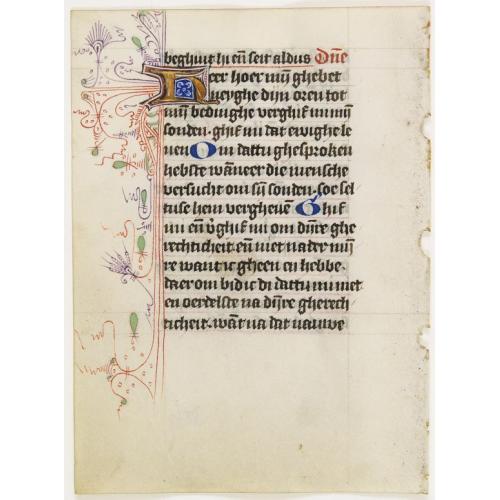 beghint hi eñ seit aldus Dñe
Heer hoer mijn ghebet
Neyghe dijn oren tot
mijn bedinghe verghif mi mijn
sonden. ghif mi dat ewighe le
uen Om dattu ghesproken
hebste wāneer die mensche
versucht om sijn sonden. soe sel
tuse hem vergheuen Ghif
mi eñ v̄ghif mi om dijnre ghe
rechticheit. eñ niet na der mijn
re want ic gheen en hebbe.
daer om bid ic di dattu mi niet
en oerdelste na dijnre gherech
ticheit. wāt na dat nauwe